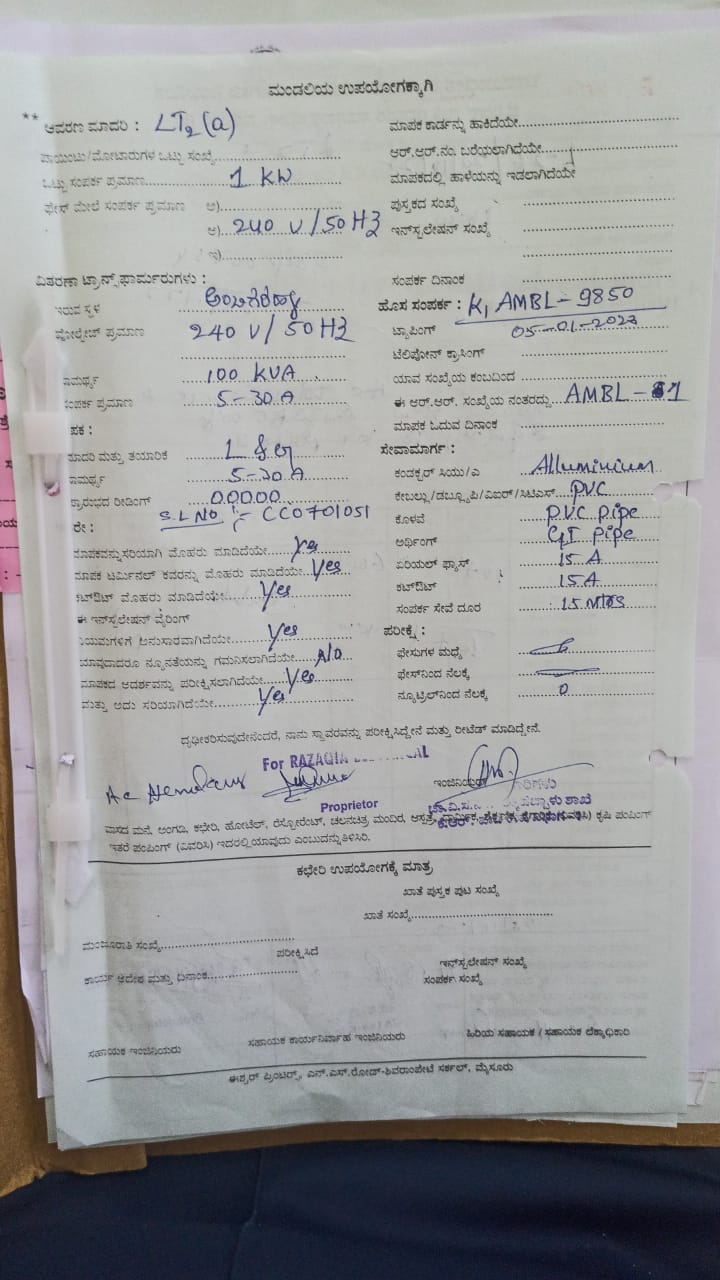 ಮಂಡಲಿಯ ಉಪಯೋಗಕ್ಕಾಗಿ
** ಆವರಣ ಮಾದರಿ : LT2 (a)
ಪಾಯಿಂಟು/ಮೋಟಾರುಗಳ ಒಟ್ಟು ಸಂಖ್ಯೆ
ಒಟ್ಟು ಸಂಪರ್ಕ ಪ್ರಮಾಣ 1 KW
ಫೇಸ್ ಮೇಲೆ ಸಂಪರ್ಕ ಪ್ರಮಾಣ ಅ)
ಆ) 240 V / 50 HZ
ಇ)
ವಿತರಣಾ ಟ್ರಾನ್ಸ್‌ಫಾರ್ಮರುಗಳು :
ಇರುವ ಸ್ಥಳ
ವೋಲ್ಟೇಜ್ ಪ್ರಮಾಣ 240 V / 50 HZ
ಾಮರ್ಥ್ಯ 100 KVA
ಸಂಪರ್ಕ ಪ್ರಮಾಣ 5-30 A
ಪಕ :
ಮಾದರಿ ಮತ್ತು ತಯಾರಿಕೆ L & G
ಾಮರ್ಥ್ಯ 5-30 A
ಪ್ರಾರಂಭದ ರೀಡಿಂಗ್ 00000
ರೇ : S.L NO :- CC0701051
ಮಾಪಕವನ್ನು ಸರಿಯಾಗಿ ಮೊಹರು ಮಾಡಿದೆಯೇ Yes
ಮಾಪಕ ಟರ್ಮಿನಲ್ ಕವರನ್ನು ಮೊಹರು ಮಾಡಿದೆಯೇ Yes
ಕಟ್‌ಔಟ್ ಮೊಹರು ಮಾಡಿದೆಯೇ Yes
ಈ ಇನ್‌ಸ್ಟಲೇಷನ್ ವೈರಿಂಗ್
ನಿಯಮಗಳಿಗೆ ಅನುಸಾರವಾಗಿದೆಯೇ Yes
ಯಾವುದಾದರೂ ನ್ಯೂನತೆಯನ್ನು ಗಮನಿಸಲಾಗಿದೆಯೇ No
ಮಾಪಕದ ಆದರ್ಶವನ್ನು ಪರೀಕ್ಷಿಸಲಾಗಿದೆಯೇ Yes
ಮತ್ತು ಅದು ಸರಿಯಾಗಿದೆಯೇ Yes
ಮಾಪಕ ಕಾರ್ಡನ್ನು ಹಾಕಿದೆಯೇ
ಆರ್.ಆರ್.ನಂ. ಬರೆಯಲಾಗಿದೆಯೇ
ಮಾಪಕದಲ್ಲಿ ಹಾಳೆಯನ್ನು ಇಡಲಾಗಿದೆಯೇ
ಪುಸ್ತಕದ ಸಂಖ್ಯೆ
ಇನ್‌ಸ್ಟಲೇಷನ್ ಸಂಖ್ಯೆ
ಸಂಪರ್ಕ ದಿನಾಂಕ
ಹೊಸ ಸಂಪರ್ಕ : K, AMBL - 9850
ಟ್ಯಾಪಿಂಗ್ 05-01-2023
ಟೆಲಿಫೋನ್ ಕ್ರಾಸಿಂಗ್
ಯಾವ ಸಂಖ್ಯೆಯ ಕಂಬದಿಂದ
ಈ ಆರ್.ಆರ್. ಸಂಖ್ಯೆಯ ನಂತರದ್ದು AMBL -
ಮಾಪಕ ಓದುವ ದಿನಾಂಕ
ಸೇವಾಮಾರ್ಗ :
ಕಂಡಕ್ಟರ್ ಸಿಯು/ಎ Alluminium
ಕೇಬಲ್ಲು/ಡಬ್ಲ್ಯೂಪಿ/ವಿಐಆರ್/ಸಿಟಿಎಸ್ PVC
ಕೊಳವೆ PVC Pipe
ಅರ್ಥಿಂಗ್ GI Pipe
ಏರಿಯಲ್ ಫ್ಯೂಸ್ 15 A
ಕಟ್‌ಔಟ್ 15 A
ಸಂಪರ್ಕ ಸೇವೆ ದೂರ 15 Mtrs
ಪರೀಕ್ಷೆ :
ಫೇಸುಗಳ ಮಧ್ಯೆ
ಫೇಸ್‌ನಿಂದ ನೆಲಕ್ಕೆ
ನ್ಯೂಟ್ರಲ್‌ನಿಂದ ನೆಲಕ್ಕೆ 0
ದೃಢೀಕರಿಸುವುದೇನೆಂದರೆ, ನಾನು ಸ್ಥಾವರವನ್ನು ಪರೀಕ್ಷಿಸಿದ್ದೇನೆ ಮತ್ತು ರೀಟೆಡ್ ಮಾಡಿದ್ದೇನೆ.
For RAZAQIA
Proprietor
ವಾಸದ ಮನೆ, ಅಂಗಡಿ, ಕಛೇರಿ, ಹೋಟೆಲ್, ರೆಸ್ಟೋರೆಂಟ್, ಚಲನಚಿತ್ರ ಮಂದಿರ, ಆಸ್ಪತ್ರೆ, ಕೃಷಿ ಪಂಪಿಂಗ್
ಇತರೆ ಪಂಪಿಂಗ್ (ವಿವರಿಸಿ) ಇದರಲ್ಲಿ ಯಾವುದು ಎಂಬುದನ್ನು ತಿಳಿಸಿರಿ.
ಕಛೇರಿ ಉಪಯೋಗಕ್ಕೆ ಮಾತ್ರ
ಖಾತೆ ಪುಸ್ತಕ ಪುಟ ಸಂಖ್ಯೆ
ಖಾತೆ ಸಂಖ್ಯೆ
ಮಂಜೂರಾತಿ ಸಂಖ್ಯೆ
ಪರೀಕ್ಷಿಸಿದೆ
ಇನ್‌ಸ್ಟಲೇಷನ್ ಸಂಖ್ಯೆ
ಕಾರ್ಯ ಆದೇಶ ಮತ್ತು ದಿನಾಂಕ
ಸಂಪರ್ಕ ಸಂಖ್ಯೆ
ಸಹಾಯಕ ಇಂಜಿನಿಯರು ಸಹಾಯಕ ಕಾರ್ಯನಿರ್ವಾಹ ಇಂಜಿನಿಯರು ಹಿರಿಯ ಸಹಾಯಕ / ಸಹಾಯಕ ಲೆಕ್ಕಾಧಿಕಾರಿ
ಈಶ್ವರ್ ಪ್ರಿಂಟರ್ಸ್, ಎನ್.ಎಸ್.ರೋಡ್-ಶಿವರಾಂಪೇಟೆ ಸರ್ಕಲ್, ಮೈಸೂರು